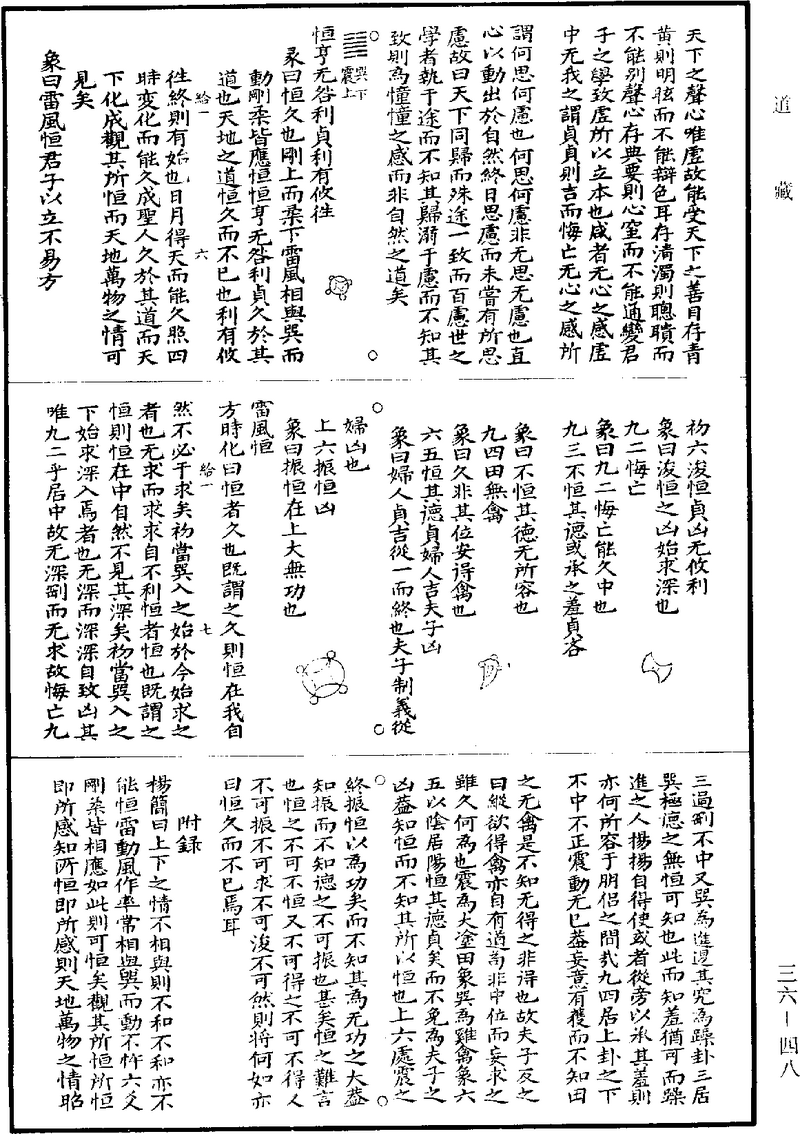 道藏
天下之聲心唯虛故能受天下之善目存青
黃則明眩而不能辯色耳存清濁則聰聵而
不能別聲心存典要則心窒而不能通變君
子之學致虛所以立本也咸者无心之感虛
中无我之謂貞貞則吉而悔亡无心之感所
謂何思何慮也何思何慮非无思无慮也直
心以動出於自然終日思慮而未嘗有所思
慮故曰天下同歸而殊途一致而百慮世之
學者執于途而不知其歸溺于慮而不知其
致則為憧憧之感而非自然之道矣
巽下
震上
恒亨无咎利貞利有攸往
彖曰恒久也剛上而柔下雷風相與巽而
動剛柔皆應恒恒亨无咎利貞久於其
道也天地之道恒久而不已也利有攸
給一 六
往終則有始也日月得天而能久照四
時变化而能久成聖人久於其道而天
下化成觀其所恒而天地萬物之情可
見矣
象曰雷風恒君子以立不易方
初六浚恒貞凶无攸利
象曰浚恒之凶始求深也
九二悔亡
象曰九二悔亡能久中也
九三不恒其德或承之羞貞吝
象曰不恒其德无所容也
九四田無禽
象曰久非其位安得禽也
六五恒其德貞婦人吉夫子凶
象曰婦人貞吉從一而終也夫子制義從
婦凶也
上六振恒凶
象曰振恒在上大無功也
雷風恒
方時化曰恒者久也既謂之久則恒在我自
給一 七
然不必于求矣初當巽入之始於今始求之
者也无求而求求自不利恒者恒也既謂之
恒則恒在中自然不見其深矣初當巽入之
下始求深入焉者也无深而深深自致凶其
唯九二乎居中故无深剛而无求故悔亡九
三過剛不中又巽為進退其究為躁卦三居
巽極德之無恒可知也此而知羞猶可而躁
進之人揚揚自得使或者從旁以承其羞則
亦何所容于朋侶之問哉九四居上卦之下
不中不正震動无已葢妄意有獲而不知田
之无禽是不知无得之非得也故夫子反之
曰縱欲得禽亦自有道而非中位而妄求之
雖久何為也震為大塗田象巽為雞禽象六
五以陰居陽恒其德貞矣而不免為夫子之
凶葢知恒而不知其所以恒也上六處震之
終振恒以為功矣而不知其為无功之大葢
知振而不知德之不可振也甚矣恒之難言
也恒之不可不恒又不可得之不可不得人
不可振不可求不可浚不可然則將何如亦
曰恒久而不已焉耳
附錄
楊簡曰上下之情不相與則不和不和亦不
能恒雷動風作率常相與巽而動不忤六爻
剛柔皆相應如此則可恒矣觀其所恒所恒
即所感知所恒即所感則天地萬物之情昭
三六－四八